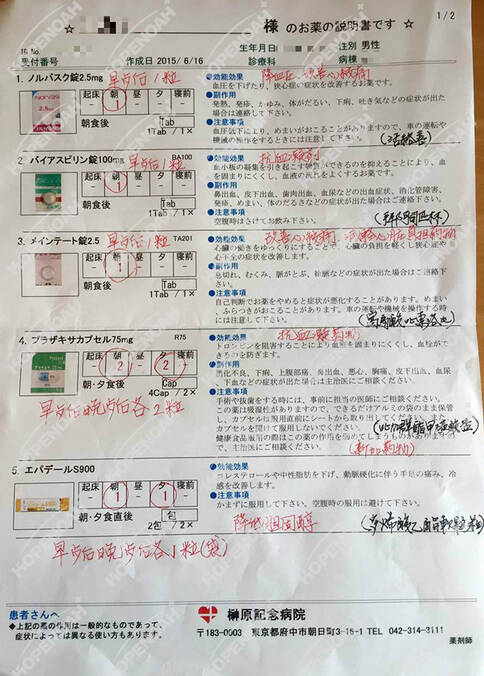 1/2
☆ 様 のお薬の説明書です ☆
ID No. 生年月日 性別 男性
受付番号 作成日 2015/6/16 診療科 病棟
1. ノルバスク錠2.5mg 早步后1粒
起床 朝 昼 夕 寝前
- 1 - - -
朝食後 1Tab
1Tab / 1×
●効能効果 降血压
血圧を下げたり、狭心症の症状を改善するお薬です。
●副作用
発熱、発疹、かゆみ、体がだるい、下痢、吐き気などの症状が出た
場合は連絡して下さい。
●注意事項
血圧低下により、めまいがおこることがありますので、車の運転や
機械の操作をするときには注意して下さい。
2. バイアスピリン錠100mg 早步后1粒 BA100
起床 朝 昼 夕 寝前
- 1 - - -
朝食後 1Tab
1Tab / 1×
●効能効果
血小板の凝集を引き起こす物質ができるのを抑えることにより、血
を固まりにくくし、血液の流れをよくするお薬です。
●副作用
鼻出血、皮下出血、歯肉出血、血尿などの出血症状、消化管障害、
発疹、めまい、体のだるさなどの症状が出た場合はご連絡下さい。
●注意事項
空腹時はさけてお飲み下さい。
3. メインテート錠2.5 早步后1粒 TA201
起床 朝 昼 夕 寝前
- 1 - - -
朝食後 1Tab
1Tab / 1×
●効能効果
心臓の働きをゆっくりにすることで、心臓の負担を軽くし狭心症や
心不全の症状を改善します。
●副作用
息切れ、むくみ、脈がとぶ、徐脈などの症状が出た場合はご連絡下
さい。
●注意事項
自己判断でお薬をやめると症状が悪化することがあります。めまい
、ふらつきがおこることがあります。車の運転や機械を操作する時
には注意して下さい。
4. プラザキサカプセル75mg R75
起床 朝 昼 夕 寝前
- 2 - 2 -
朝・夕食後 4Cap
4Cap / 2×
早步后晚步后各2粒
●効能効果
トロンビンを阻害することにより血液を固まりにくくし、血栓がで
きるのを防ぎます。
●副作用
消化不良、下痢、上腹部痛、鼻出血、悪心、胸痛、皮下出血、血尿
、下血などの症状が出た場合は主治医にご相談ください。
●注意事項
手術や抜歯をする時には、事前に担当の医師にご相談ください。
この薬は吸湿性がありますので、できるだけアルミの袋のまま保管
し、カプセルは服用直前にシートから取り出してください。また、
カプセルを開けて服用しないでください。
健康食品服用の際はこの薬の作用を弱めてしまうものがありますの
で、主治医にご相談ください。
(新加药物)
5. エパデールS900
起床 朝 昼 夕 寝前
- 1 - 1 -
朝・夕食直後 包
2包 / 2×
●効能効果
コレステロールや中性脂肪を下げ、動脈硬化に伴う手足の痛み、冷
感を改善します。
●注意事項
かまずに服用して下さい。空腹時の服用は避けて下さい。
降低胆固醇
早步后晚步后各1粒(袋)
患者さんへ
◆上記の薬の作用は一般的なものであって、
症状によっては異なる使い方もあります。
榊原記念病院
〒183-0003 東京都府中市朝日町3-16-1 TEL 042-314-3111
薬剤師